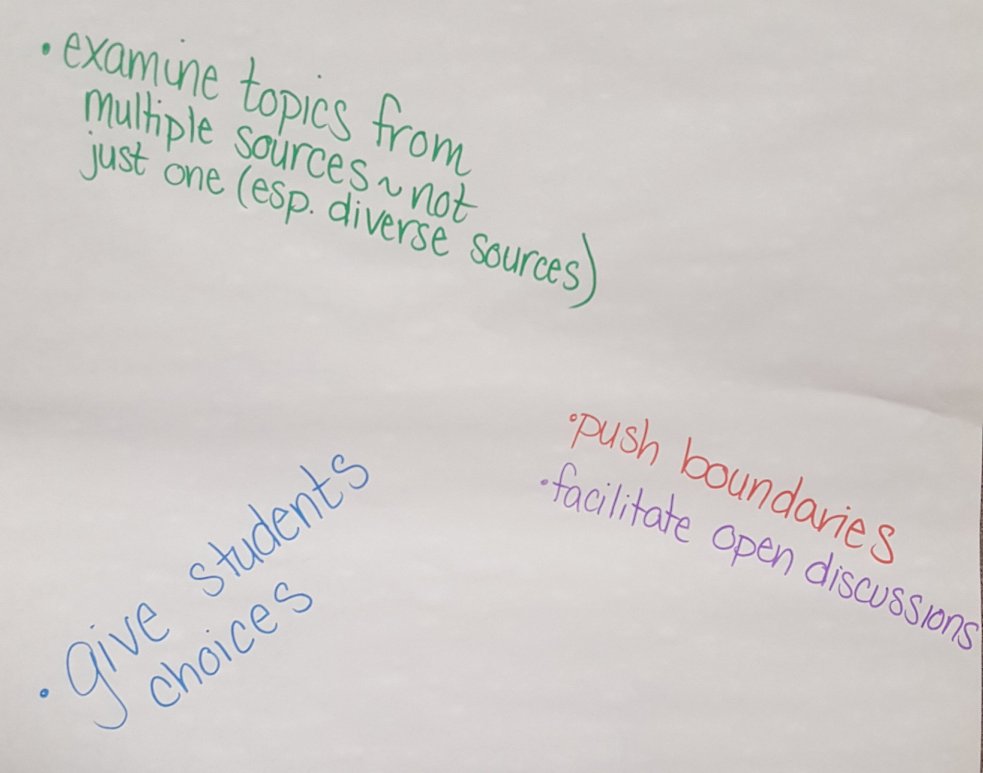 • examine topics from
multiple sources ~ not
just one (esp. diverse sources)
• push boundaries
• facilitate open discussions
• give students
choices